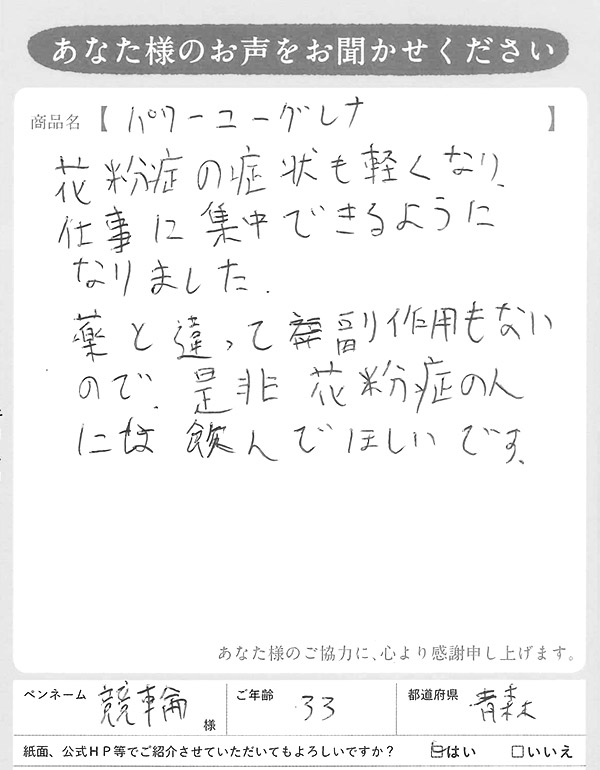 あなた様のお声をお聞かせください
商品名【パワーユーグレナ】
花粉症の症状も軽くなり、
仕事に集中できるように
なりました.
薬と違って副作用もない
ので、是非花粉症の人
には飲んでほしいです。
あなた様のご協力に、心より感謝申し上げます。
ペンネーム 競輪 様 ご年齢 33 都道府県 青森
紙面、公式HP等でご紹介させていただいてもよろしいですか? はい □いいえ